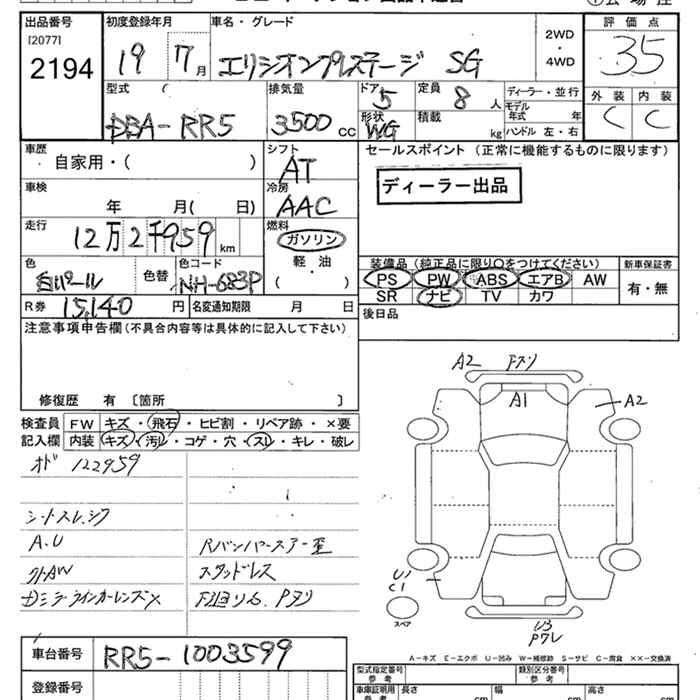 出品番号
[2077]
2194
初度登録年月
19 7 月
車名・グレード
エリシオンプレステージ SG
2WD
・
4WD
評価点
3.5
型式
DBA-RR5
排気量
3500 cc
ドア
5
定員
8 人
形状
WG
積載
kg
ディーラー・並行
モデル
年式 年
ハンドル 左・右
外装
C
内装
C
車歴
自家用・( )
シフト
AT
車検
年 月( 日)
冷房
AAC
走行
12万2千959 km
燃料
ガソリン
軽・油
( )
色
白パール
色替
色コード
NH-683P
R券
15,140 円
名変通知期限 月 日
セールスポイント (正常に機能するものに限ります)
ディーラー出品
装備品 (純正品に限り○をつけてください)
PS PW ABS エアB AW
SR ナビ TV カワ
新車保証書
有・無
後日品
注意事項申告欄 (不具合内容等は具体的に記入して下さい)
修復歴 有 〔箇所 〕
検査員
記入欄
FW キズ・飛石・ヒビ割・リペア跡・×要
内装 キズ・汚レ・コゲ・穴・スレ・キレ・破レ
オド 122959
シートスレ、シワ
A.U
外AW
スタッドレス
A2
A1
A2
U1
C1
スペア
U3
A-キズ E-エクボ U-凹み W-補修跡 S-サビ C-腐食 ××-交換済
車台番号
RR5-1003599
登録番号
型式指定番号
参考
類別区分番号
参考
車庫証明用
参考
長さ cm
幅 cm
高さ cm